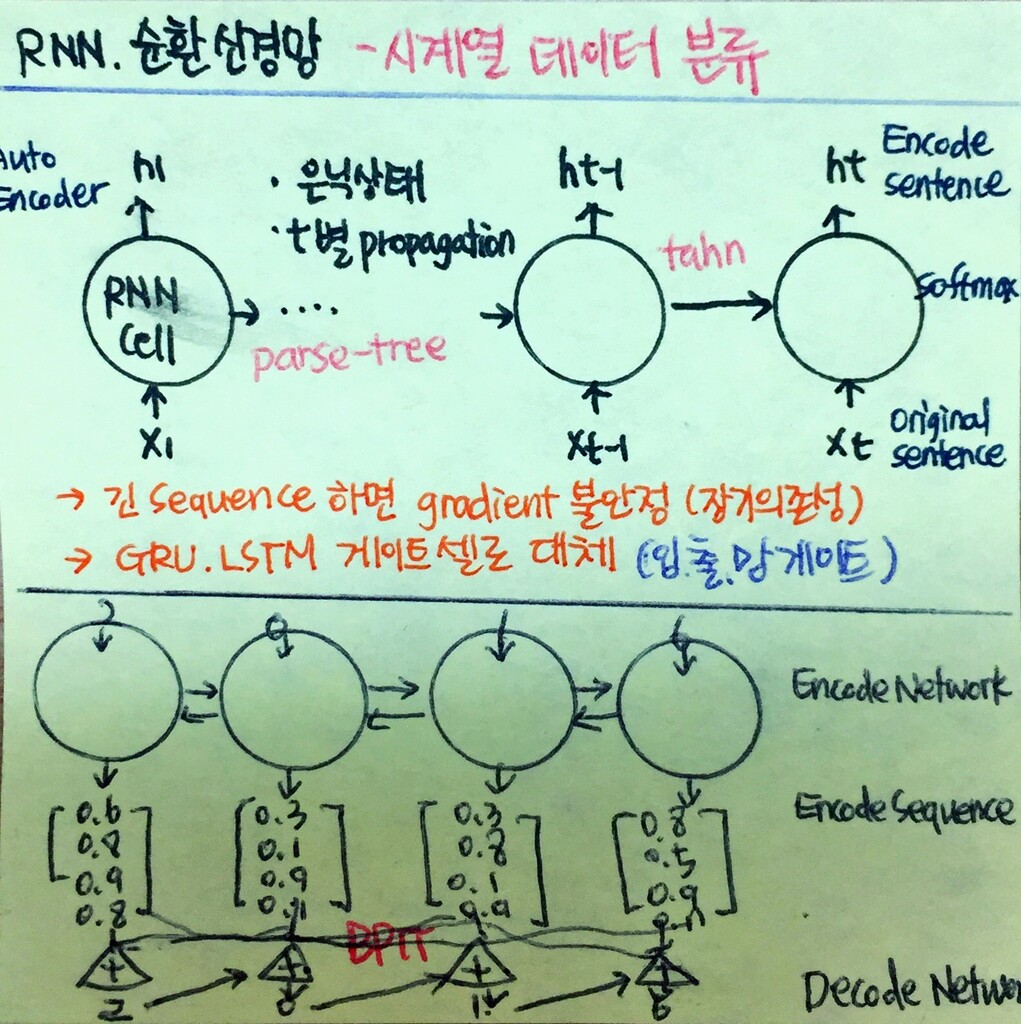 RNN. 순환신경망 - 시계열 데이터 분류
Auto Encoder
h1
· 은닉상태
· t별 propagation
ht-1
ht
Encode sentence
RNN Cell
....
parse-tree
tahn
softmax
x1
xt-1
xt
Original sentence
→ 긴 sequence 하면 gradient 불안정 (장기의존성)
→ GRU. LSTM 게이트셀로 대체 (입.출.망 게이트)
2 0 1 6
Encode Network
Encode Sequence
0.6 0.3 0.3 0.8
0.8 0.1 0.8 0.5
0.9 0.9 0.1 0.9
0.8
BPTT
+ + + +
2 0 1 6
Decode Networ